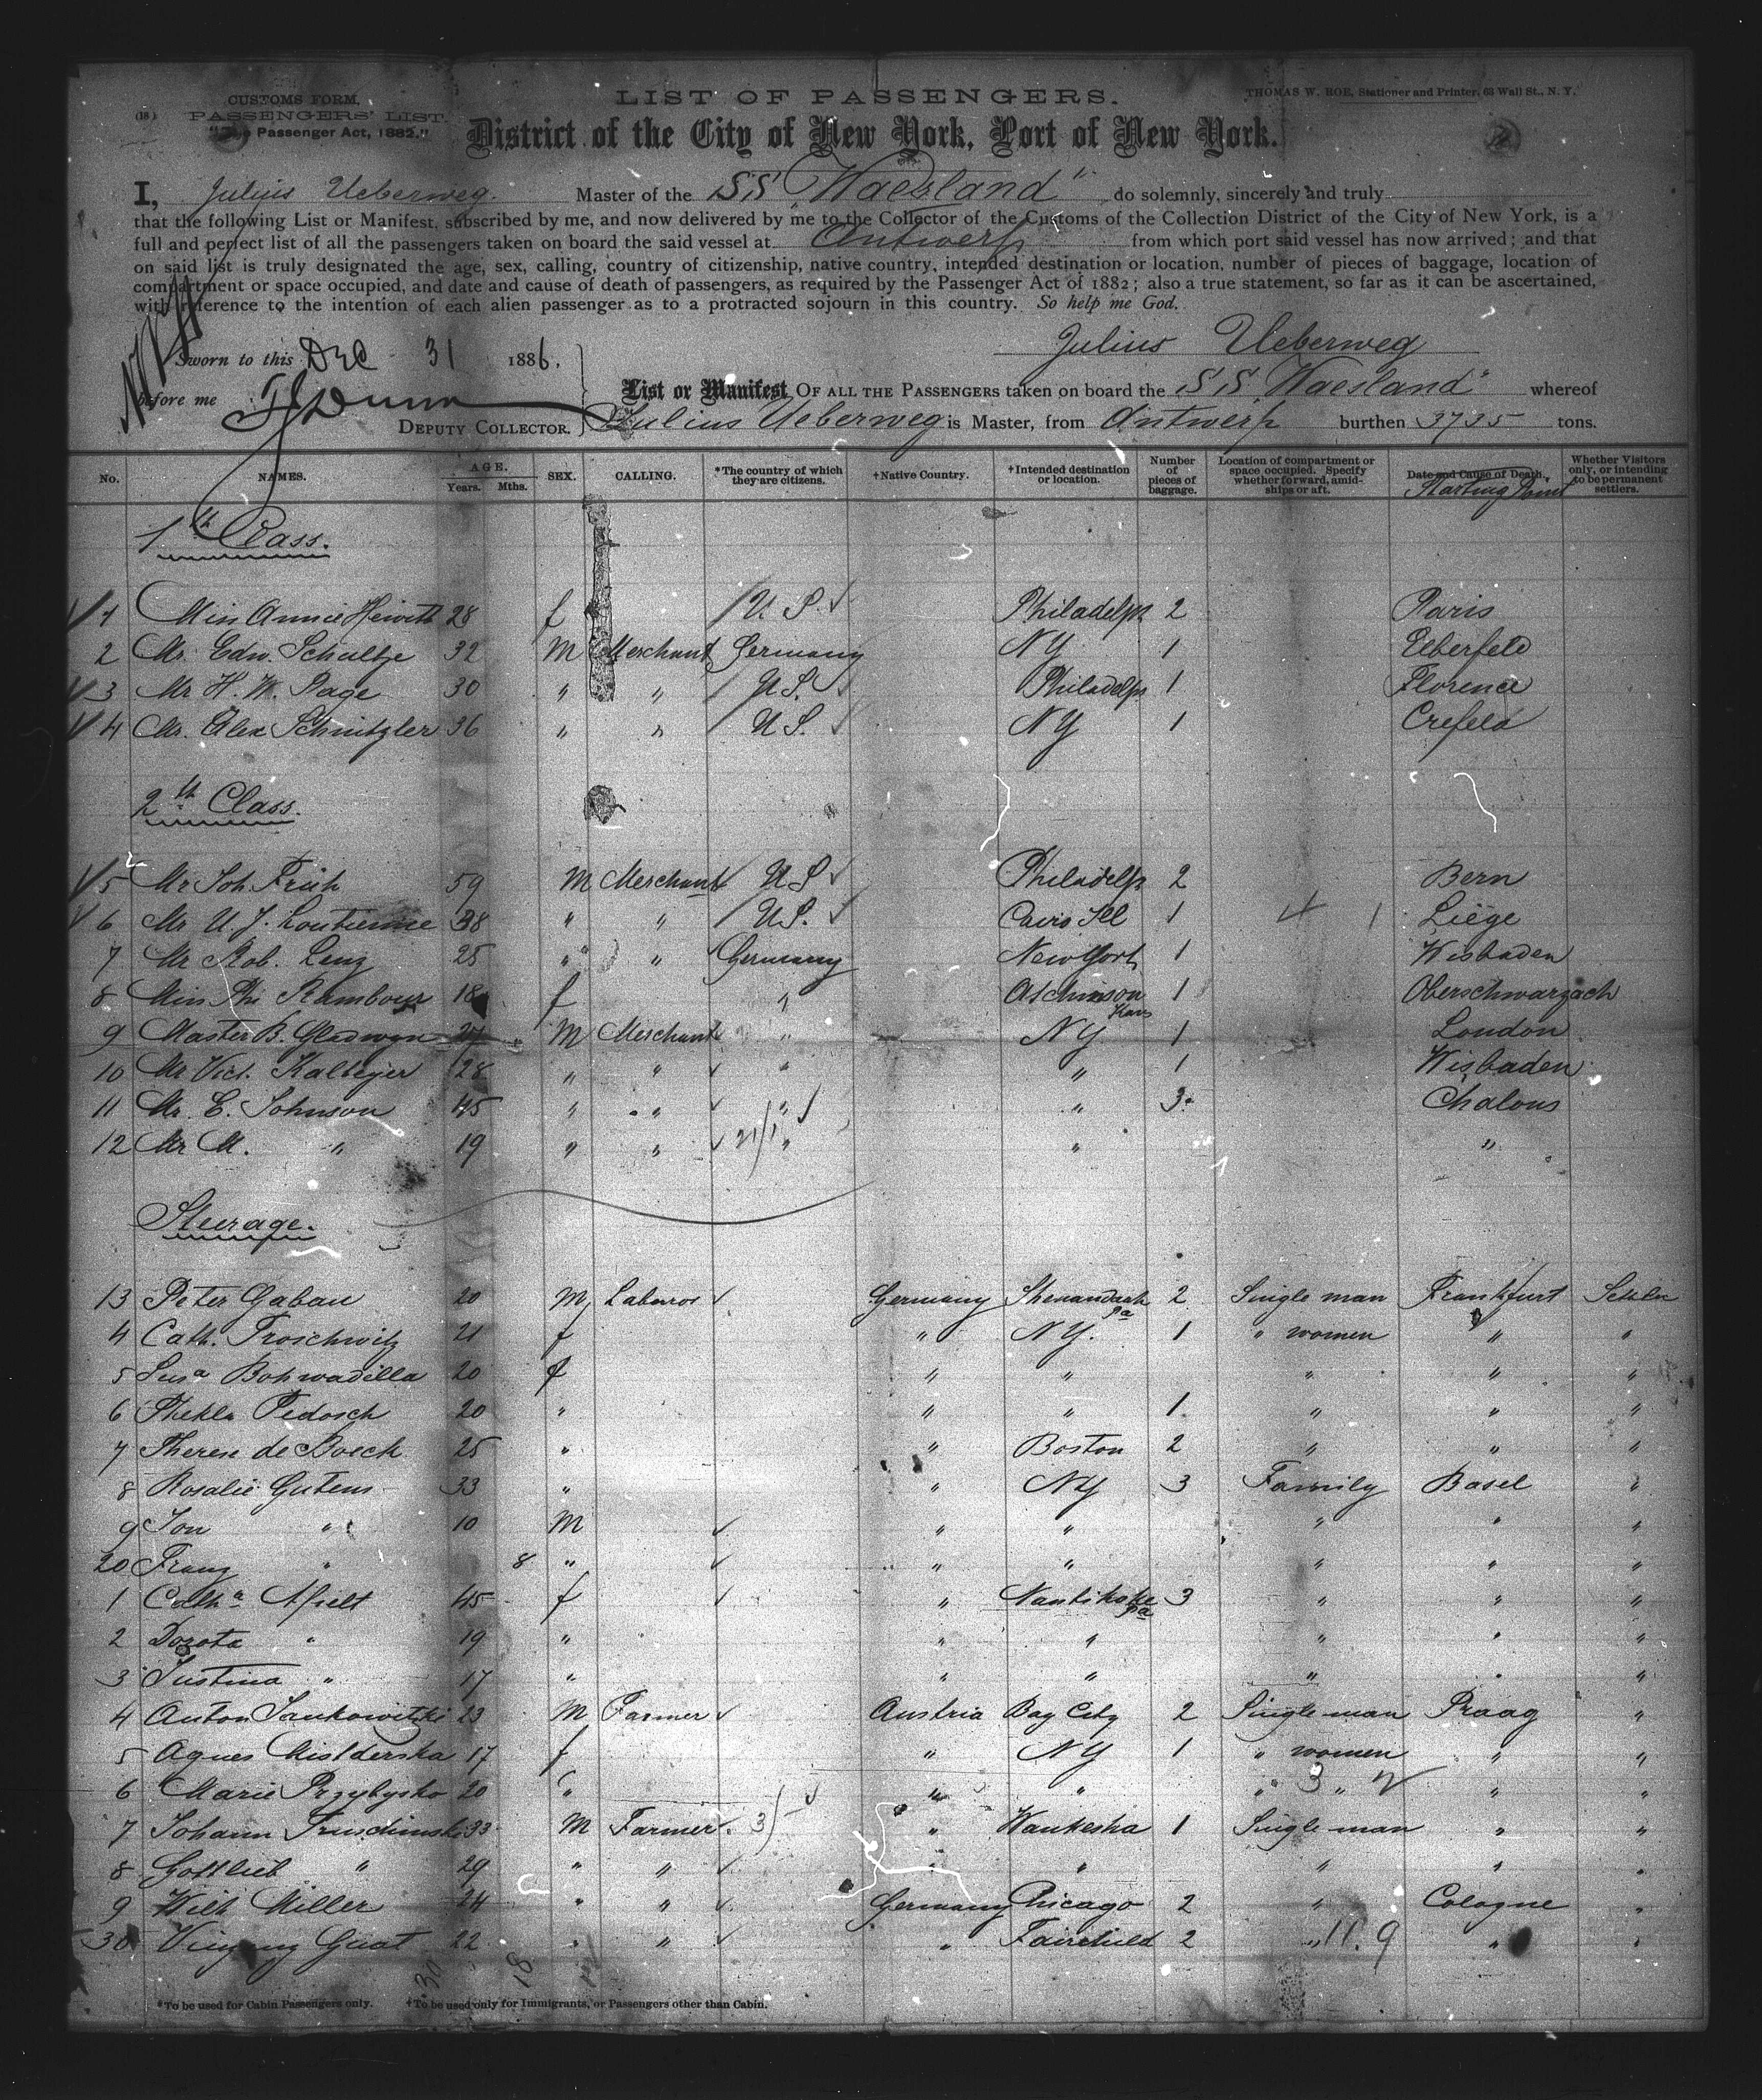 CUSTOMS FORM.
(18) PASSENGERS' LIST.
"The Passenger Act, 1882."
LIST OF PASSENGERS.
THOMAS W. ROE, Stationer and Printer, 63 Wall St., N. Y.
District of the City of New York, Port of New York.
I, Julius Ueberweg. Master of the SS "Waesland" do solemnly, sincerely and truly
that the following List or Manifest, subscribed by me, and now delivered by me to the Collector of the Customs of the Collection District of the City of New York, is a
full and perfect list of all the passengers taken on board the said vessel at Antwerp from which port said vessel has now arrived; and that
on said list is truly designated the age, sex, calling, country of citizenship, native country, intended destination or location, number of pieces of baggage, location of
compartment or space occupied, and date and cause of death of passengers, as required by the Passenger Act of 1882; also a true statement, so far as it can be ascertained,
with reference to the intention of each alien passenger as to a protracted sojourn in this country. So help me God.
Julius Ueberweg
Sworn to this Dec 31 1886.
before me
DEPUTY COLLECTOR.
List or Manifest OF ALL THE PASSENGERS taken on board the SS "Waesland" whereof
Julius Ueberweg is Master, from Antwerp burthen 3735 tons.
No. NAMES. AGE. Years. Mths. SEX. CALLING. *The country of which they are citizens. †Native Country. †Intended destination or location. Number of pieces of baggage. Location of compartment or space occupied. Specify whether forward, amidships or aft. Date and Cause of Death. Starting Point Whether Visitors only, or intending to be permanent settlers.
1th Class.
1 Miss Annie Hewitt 28 f U.S. Philadelph 2 Paris
2 Mr. Edw. Schultze 32 M Merchant Germany NY 1 Elberfeld
3 Mr H. W. Page 30 " " U.S. Philadelph 1 Florence
4 Mr. Alex Schnitzler 36 " " U.S. NY 1 Crefeld
2th Class.
5 Mr Joh. Früh 59 M Merchant U.S. Philadelph 2 Bern
6 Mr U J. 38 " " U.S. Cairo Ill 1 Liége
7 Mr Rob. Lenz 25 " " Germany New York 1 Wisbaden
8 Miss Phi Rambour 18 f " Atchinson Kans 1 Oberschwarzach
9 Master B. Gladwyn M Merchant " NY 1 London
10 Mr Vict. Kalteyer 28 " " " " 1 Wisbaden
11 Mr. E. Johnson 45 " " " " 3 Chalons
12 Mr M. " 19 " " " " "
Steerage.
13 Peter Gabau 20 M Laboror Germany Shenandoah Pa 2 Single man Frankfurt Settler
4 Cath. Troschwitz 21 f " NY. 1 " women " "
5 Susa Bohwadilla 20 f " " " " "
6 Thekla Pedosch 20 " " " 1 " " "
7 Therese de Boeck 25 " " Boston 2 " " "
8 Rosalie Gutens 33 " " NY 3 Family Basel "
9 Jon " 10 M " " " " "
20 Franz " 8 " " " " " "
1 Catha 45 f " Nantikoke Pa 3 " " "
2 Dorota " 19 " " " " " "
3 Justina " 17 " " " " " "
4 Anton Jankowitzki 23 M Farmer Austria Bay City 2 Single man Praag "
5 Agnes 17 f " NY 1 " women " "
6 Marie Przybysko 20 " " " " " "
7 Johann 33 M Farmer " Waukesha 1 Single man " "
8 Gottlieb " 29 " " " " " " "
9 Wilh Miller 24 " " Germany Chicago 2 " Cologne "
30 22 " " " Fairchild 2 " " "
*To be used for Cabin Passengers only. †To be used only for Immigrants, or Passengers other than Cabin.